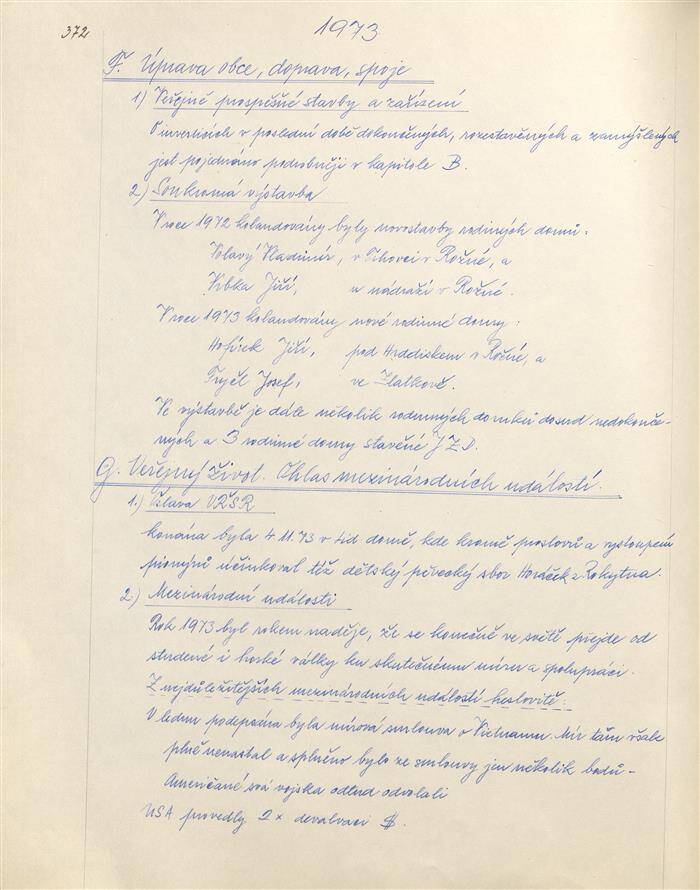 372
1973
F. Úprava obce, doprava, spoje
1) Veřejně prospěšné stavby a zařízení
O investicích v poslední době dokončených, rozestavěných a zamýšlených
jest pojednáno podrobněji v kapitole B.
2) Soukromá výstavba
V roce 1972 kolaudovány byly novostavby rodinných domů:
Volavý Vladimír, v Rožné, a
Vrbka Jiří, u nádraží v Rožné.
V roce 1973 kolaudovány nové rodinné domy:
Jiří, pod Hradiskem v Rožné, a
Josef, ve Zlatkově.
Ve výstavbě je dále několik rodinných domků dosud nedokonče-
ných a 3 rodinné domy stavěné JZD.
G. Veřejný život. Ohlas mezinárodních událostí.
1.) Oslava VŘSR
konána byla 4.11.73 v Lid domě, kde kromě proslovů a vystoupení
pionýrů účinkoval též dětský pěvecký sbor Horáček z Rokytna.
2) Mezinárodní události
Rok 1973 byl rokem naděje, že se konečně ve světě přejde od
studené i horké války ku skutečnému míru a spolupráci.
Z nejdůležitějších mezinárodních událostí heslovitě:
V lednu podepsána byla mírová smlouva o Vietnamu. Mír tam však
plně nenastal a splněno bylo ze smlouvy jen několik bodů -
Američané svá vojska odtud odvolali
USA provedly 2x devalvaci $.